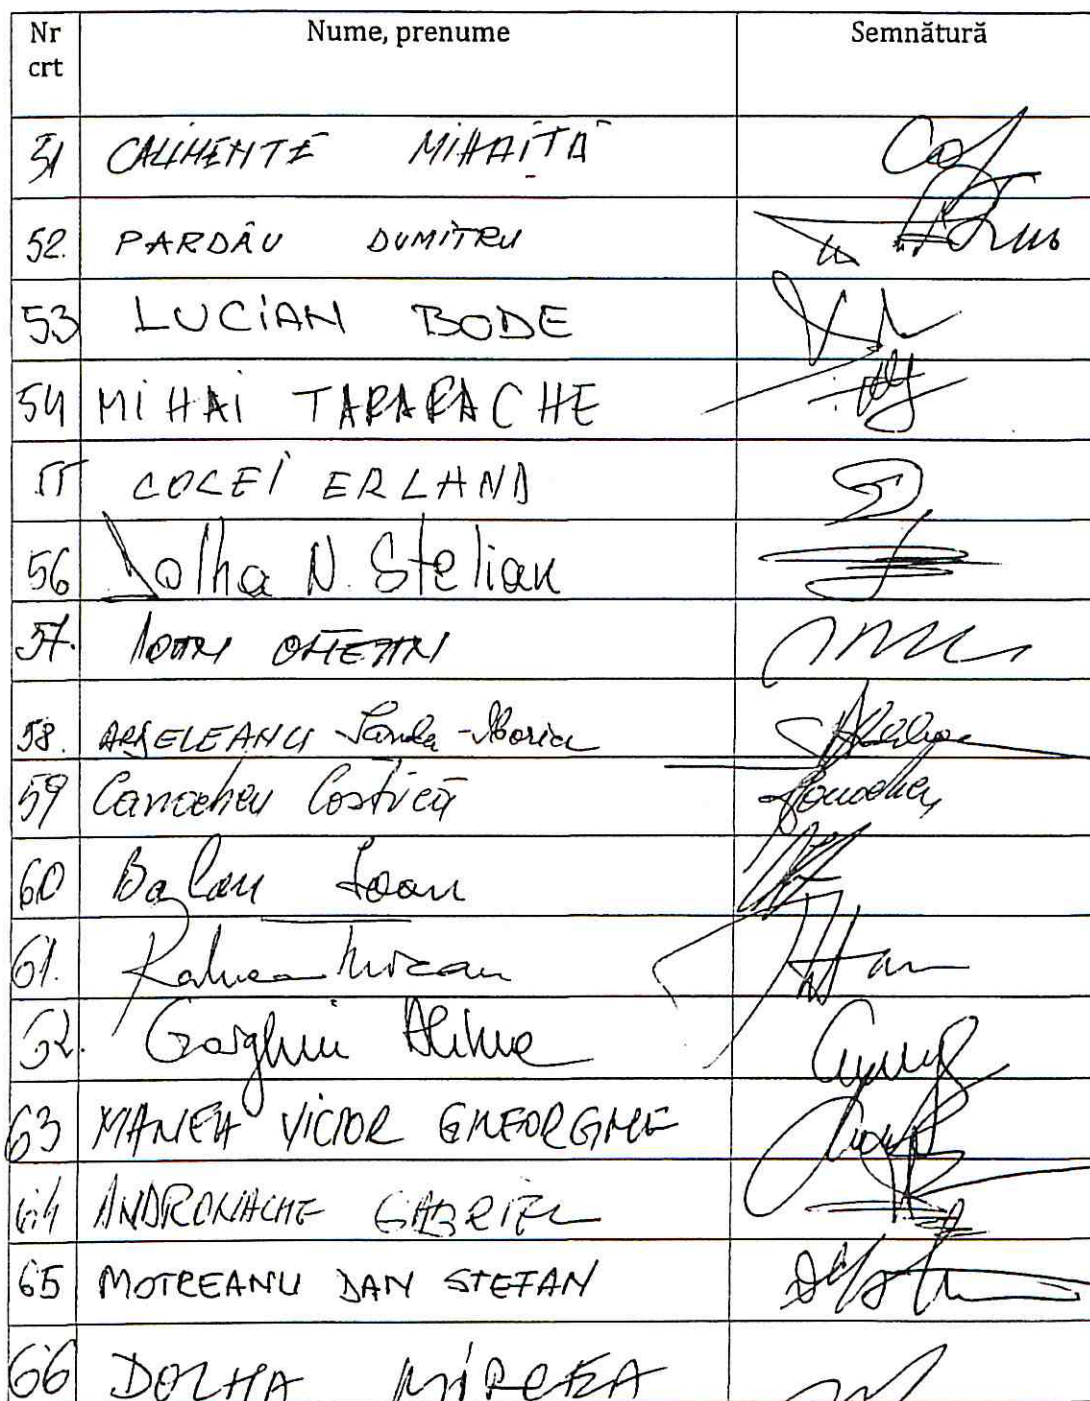 Nr crt Nume, prenume Semnătură
51 CALIMENTE MIHAIŢĂ
52. PARDĂU DUMITRU
53 LUCIAN BODE
54 MIHAI TARARACHE
55 COCEI ERLAND
56 Dolha N. Stelian
57. IOAN OLTEAN
58. ARGELEANU Sanda-Maria
59 Canacheu Costică
60 Balan Ioan
61. Raluca Turcan
62. Gorghiu Alina
63 MANEA VICTOR GHEORGHE
64 ANDRONACHE GABRIEL
65 MOTREANU DAN STEFAN
66 DOLHA MIRCEA